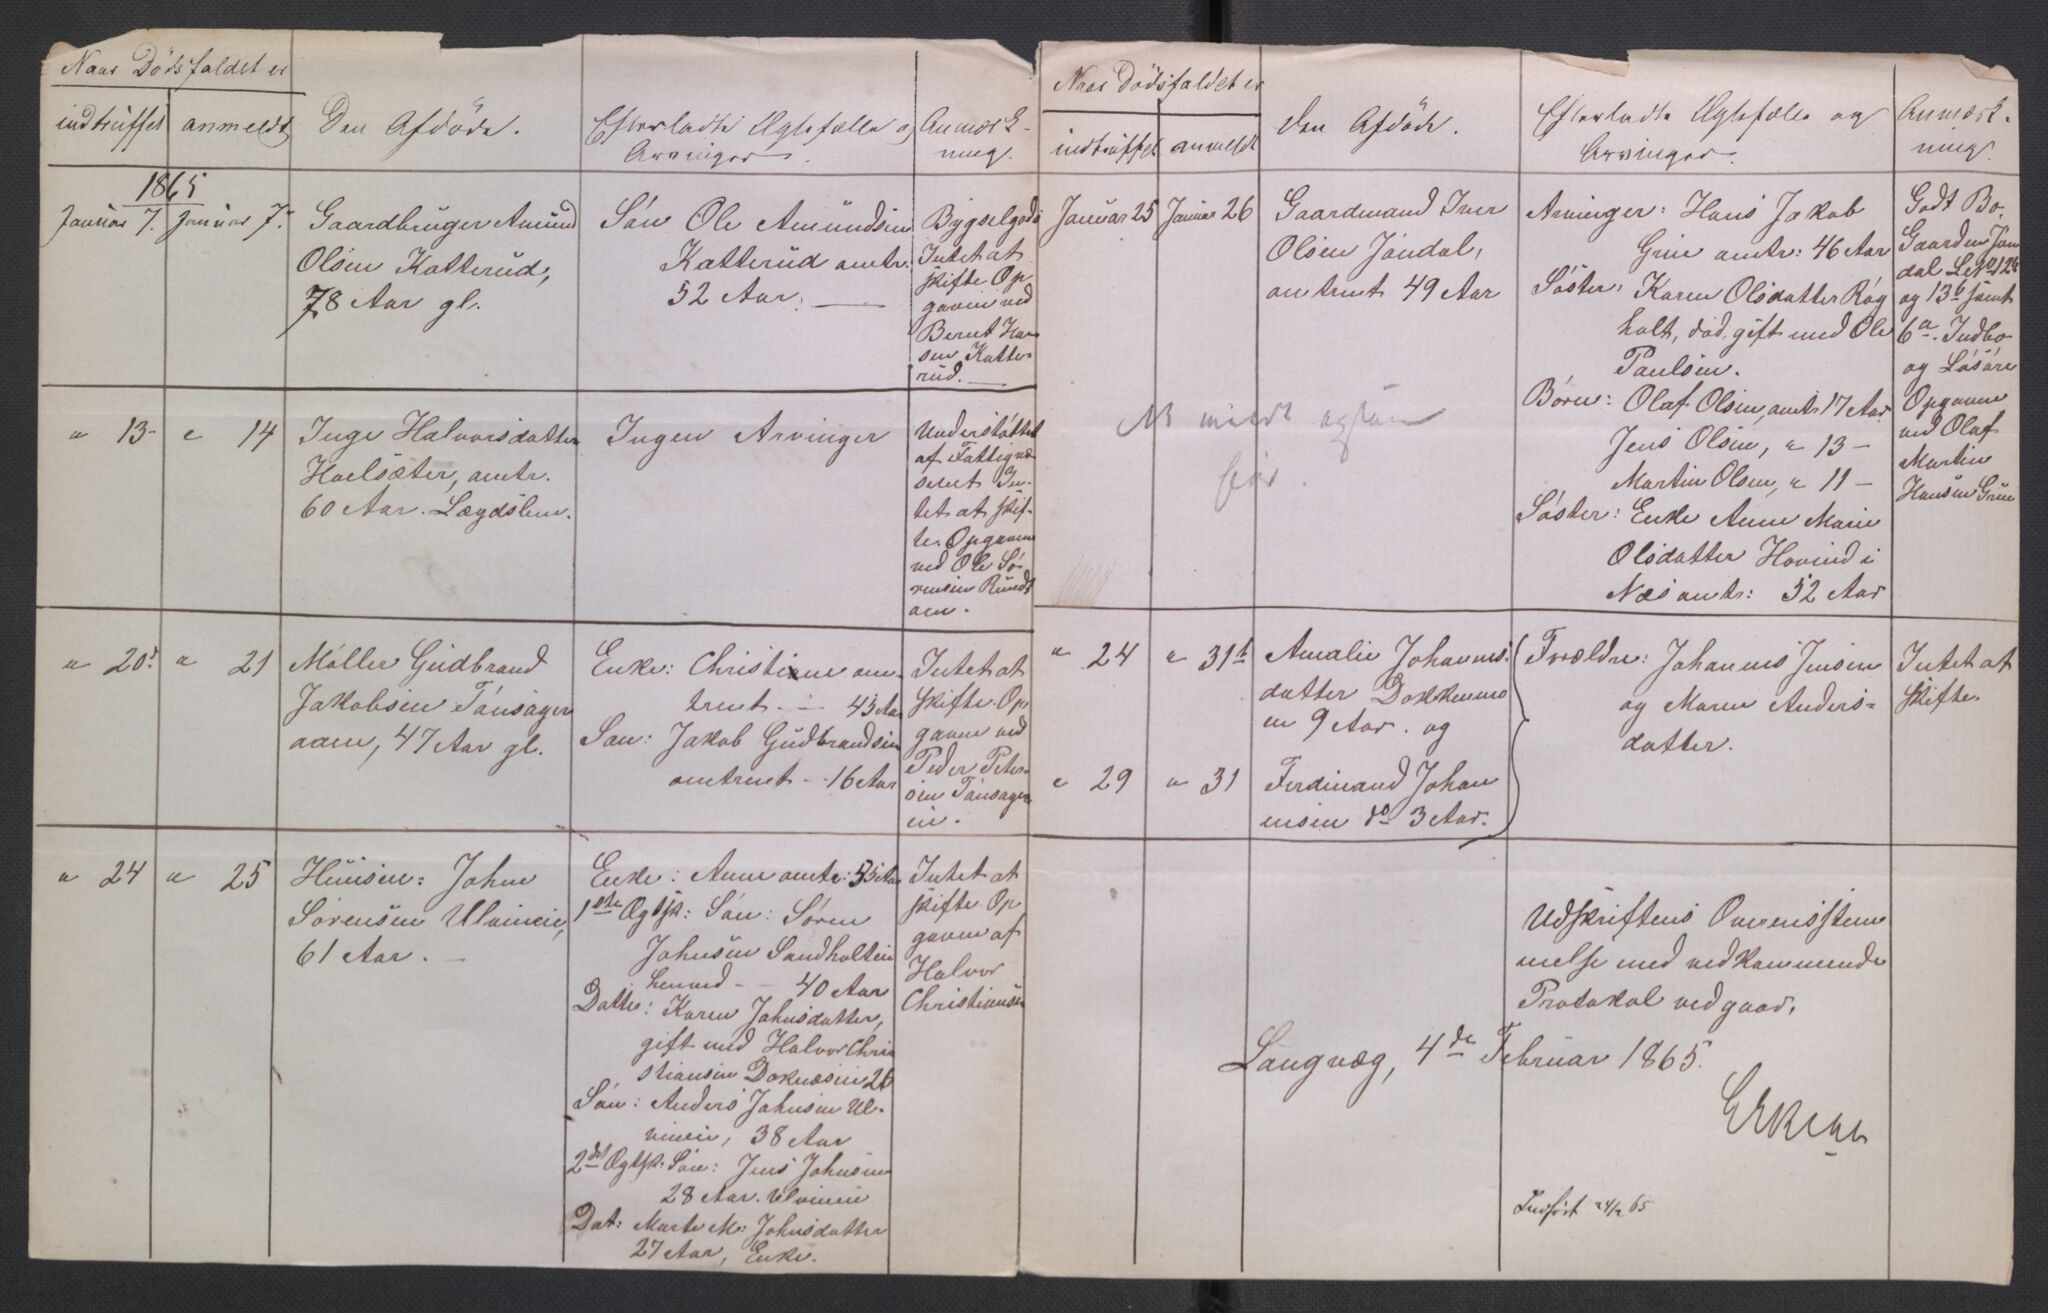 Naar Dødsfaldet er
indtruffet
anmeldt
Den Afdøde.
Efterladte Ægtefælle og
Arvinger.
Anmærk-
ning.
1865
Januar 7.
Januar 7.
Gaardbruger Amund
Olsen Katterud,
78 Aar gl.
Søn Ole Amundsen
Katterud omtr.
52 Aar.
Bygselgods
Intet at
skifte Op
gaven ved
Bernt Han
sen Katte-
rud.
" 13
" 14
Inge Halvorsdatter
Hoelsæter, omtr.
60 Aar. Lægdslem.
Ingen Arvinger
Understøttet
af Fattigvæ
senet In-
tet at skif-
te. Opgaven
ved Ole Sø-
rensen Rund
" 20
" 21
Møller Gudbrand
Jakobsen Fonsager
47 Aar gl.
Enke: Christine om-
trent - 43 Aar
Søn: Jakob Gudbrandsen
omtrent - 16 Aar
Intet at
skifte. Op
gaven ved
Peder Peter
sen Fonsager
en.
" 24
" 25
Huusm: John
Sørensen Ulvineie,
61 Aar.
Enke: Anne omtr: 55 Aar
1ste Ægtsk: Søn: Søren
Johnsen Sandholteie
40 Aar
Datter: Karen Johnsdatter,
gift med Halvor Chri
stiansen Doknæseie 26
Søn: Anders Johnsen Ul-
vineie, 38 Aar
2det Ægtsk. Søn: Jens Johnsen
28 Aar. Ulvineie
Dat: Marte M: Johnsdatter
27 Aar, Enke.
Intet at
skifte Op
gaven af
Halvor
Christiansen
Naar Dødsfaldet er
indtruffet
anmeldt
Den Afdøde.
Efterladte Ægtefælle og
Arvinger.
Anmærk-
ning.
Januar 25
Januar 26
Gaardmand Iver
Olsen Jøndal,
omtrent 49 Aar
Arvinger: Hans Jakob
Grue omtr: 46 Aar
Søster: Karen Olsdatter Røg
holt, død, gift med Ole
Paulsen.
Børn: Olaf Olsen, omtr 17 Aar
Jens Olsen, " 13 -
Martin Olsen, " 11 -
Søster: Enke Anne Marie
Olsdatter Hovind i
Næs omtr: 52 Aar
Godt Bo.
Gaarden Jøn
dal LNo 12b
og 13b samt
6a. Indbo
og Løsøre
Opgaven
ved Olaf
Martin
Hansen Grue
" 24
" 31t
Amalie Johannes-
datter Dokken
9 Aar. og
" 29
" 31
Ferdinand Johan
nesen do 3 Aar.
Forældre: Johannes Jensen
og Maren Anders-
datter.
Intet at
skifte.
Udskriftens Overensstem
melse med vedkommende
Protokol vedgaar.
Langvæg, 4de Februar 1865.
Indført 24/2 65